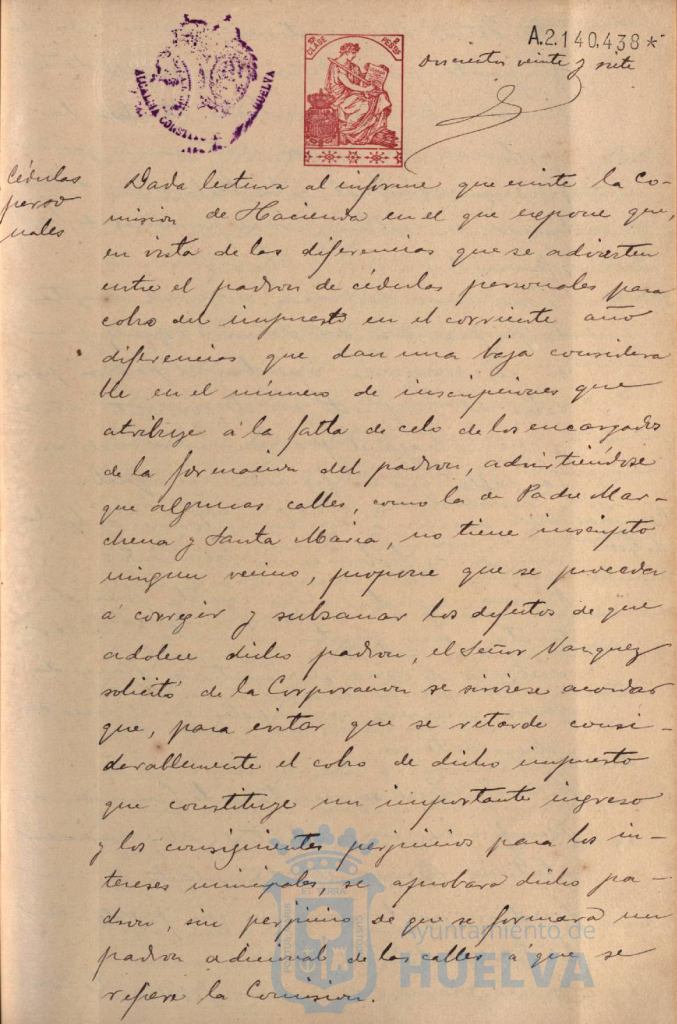 A.2.140.438 *
Doscientos veinte y siete
10ª CLASE
ALCALDIA CONSTITU
HUELVA
Cédulas
perso
nales
Dada lectura al informe que emite la Co-
mision de Hacienda en el que expone que,
en vista de las diferencias que se advierten
entre el padron de cédulas personales para
cobro del impuesto en el corriente año
diferencias que dan una baja considera
ble en el número de inscripciones que
atribuye á la falta de celo de los encargados
de la formacion del padron, advirtiéndose
que algunas calles, como la de Padre Mar-
chena y Santa Maria, no tiene inscripto
ningun vecino, propone que se proceda
á corregir y subsanar los defectos de que
adolece dicho padron, el Señor Vazquez
solicitó de la Corporacion se sirviese acordar
que, para evitar que se retarde consi-
derablemente el cobro de dicho impuesto
que constituye un importante ingreso
y los consiguientes perjuicios para los in-
tereses municipales, se aprobara dicho pa-
dron, sin perjuicio de que se formara un
padron adicional de las calles á que se
refiere la Comision.
Ayuntamiento de
HUELVA